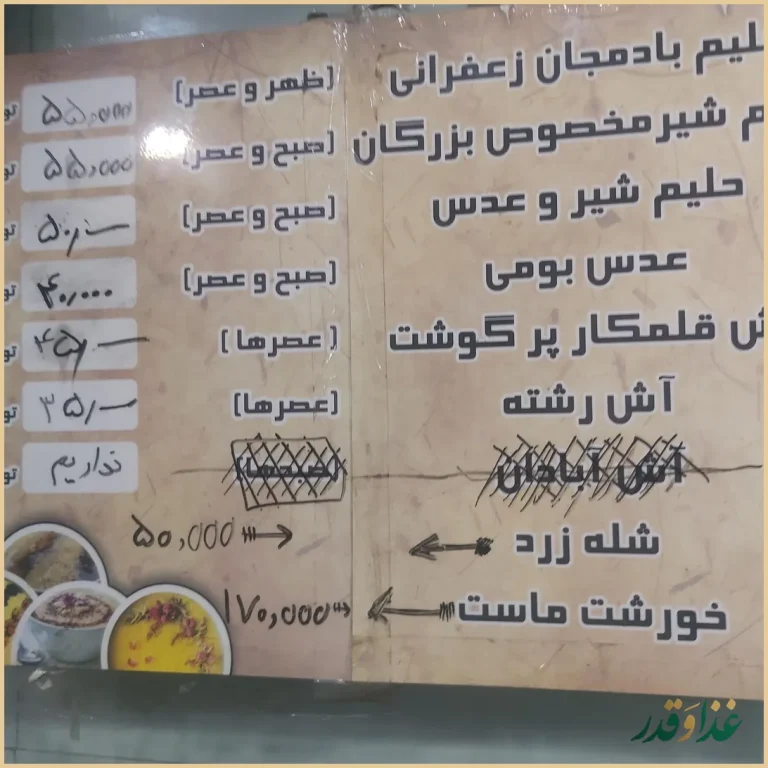 حلیم بادمجان زعفرانی (ظهر و عصر) ۵۵,۰۰۰ تو
م شیر مخصوص بزرگان (صبح و عصر) ۵۵,۰۰۰ تو
حلیم شیر و عدس (صبح و عصر) ۵۰,۰۰۰ تو
عدس بومی (صبح و عصر) ۴۰,۰۰۰ تو
ش قلمکار پر گوشت (عصرها) ۴۵,۰۰۰ تو
آش رشته (عصرها) ۳۵,۰۰۰ تو
آش آبادان (صبحها) نداریم تو
شله زرد ۵۰,۰۰۰
خورشت ماست ۱۷۰,۰۰۰
غذا و قدر